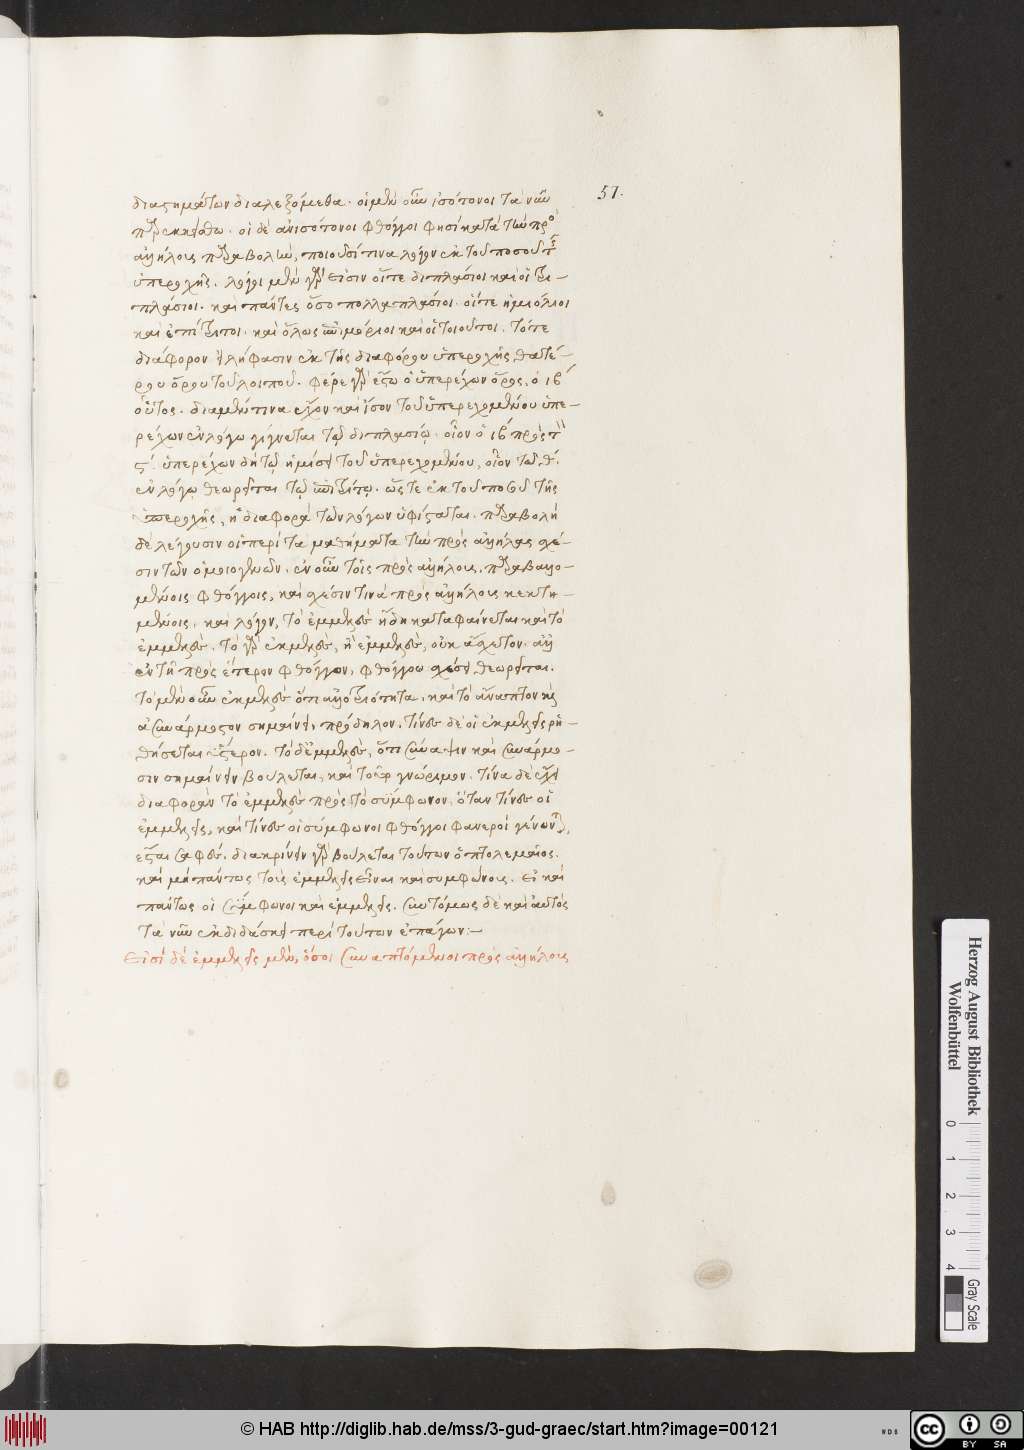 57.
διαστημάτων διαλεξόμεθα. οἱ μὲν οὖν ἰσότονοι τὰ νῦν
παρασκήφθω. οἱ δὲ ἀνισότονοι φθόγγοι φησὶ κατὰ τὴν πρὸς
ἀλλήλους παραβολὴν, ποιοῦσί τινα λόγον ἐκ τοῦ ποσοῦ τῆς
ὑπεροχῆς. λόγοι μὲν γάρ εἰσιν οἵτε διπλάσιοι καὶ οἱ τρι-
πλάσιοι. καὶ πάντες ὅσοι πολλαπλάσιοι. οἵτε ἡμιόλιοι
καὶ ἐπίτριτοι. καὶ ὅλως ἐπιμόριοι καὶ οἱ τοιοῦτοι. τό τε
διάφορον εἰλήφασιν ἐκ τῆς διαφόρου ὑπεροχῆς θατέ-
ρου ὅρου τοῦ λοιποῦ. φέρε γὰρ ἔστω ὁ ὑπερέχων ὅρος, ὁ ιβ΄
οὗτος. διὰ μέν τινα εἶχον καὶ ἴσον τοῦ ὑπερεχομένου ὑπε-
ρέχων ἐν λόγω γίγνεται τῷ διπλασίῳ. οἷον ὁ ιβ΄ πρὸς τὸν
ϛ΄. ὑπερέχων δὴ τῷ ἡμίσει τοῦ ὑπερεχομένου, οἷον τῶν θ΄.
ἐν λόγω θεωρεῖται τῷ ἐπιτρίτῳ. ὥστε ἐκ τοῦ ποσοῦ τῆς
ὑπεροχῆς, ἡ διαφορὰ τῶν λόγων ὑφίσταται. παραβολὴ
δὲ λέγουσιν οἱ περὶ τὰ μαθήματα τὴν πρὸς ἀλλήλας σχέ-
σιν τῶν ὁμοιογενῶν. ἐν οὖν τοῖς πρὸς ἀλλήλους παραβαλλο-
μένοις φθόγγοις, καὶ σχέσιν τινὰ πρὸς ἀλλήλους κεκτη-
μένοις, καὶ λόγον, τὸ ἐμμελὲς ἤδη καταφαίνεται καὶ τὸ
ἐκμελὲς. τὸ γὰρ ἐκμελὲς, ἢ ἐμμελὲς, οὐκ ἄσχετον. ἀλλ'
ἐν τῇ πρὸς ἕτερον φθόγγον, φθόγγου σχέσει θεωρεῖται.
τὸ μὲν οὖν ἐκμελὲς ὅτι ἀλλοτριότητα, καὶ τὸ ἄναπτον ἢ
ἀσυνάρμοστον σημαίνει, πρόδηλον. τίνες δὲ οἱ ἐκμελεῖς ῥη-
θήσεται ὕστερον. τὸ δ' ἐμμελὲς, ὅτι σύναψιν καὶ συνάρμο-
σιν σημαίνειν βούλεται, καὶ τοῦτο γνώριμον. τίνα δὲ εἶχε
διαφορὰν τὸ ἐμμελὲς πρὸς τὸ σύμφωνον, ὅταν τίνες οἱ
ἐμμελεῖς, καὶ τίνες οἱ σύμφωνοι φθόγγοι φανεροὶ γένωνται,
ἔσται σαφές. διακρίνειν γὰρ βούλεται τούτων ὁ πτολεμαῖος.
καὶ μὴ πάντως τοὺς ἐμμελεῖς εἶναι καὶ συμφώνους. εἰ καὶ
πάντως οἱ σύμφωνοι καὶ ἐμμελεῖς. συντόμως δὲ καὶ αὐτὸς
τὰ νῦν ἐκδιδάσκει περὶ τούτων ἐπάγων:—
εἰσὶ δὲ ἐμμελεῖς μὲν, ὅσοι συναπτόμενοι πρὸς ἀλλήλους
Herzog August Bibliothek
Wolfenbüttel
0 1 2 3 4
Gray Scale
© HAB http://diglib.hab.de/mss/3-gud-graec/start.htm?image=00121
WDB
cc BY SA